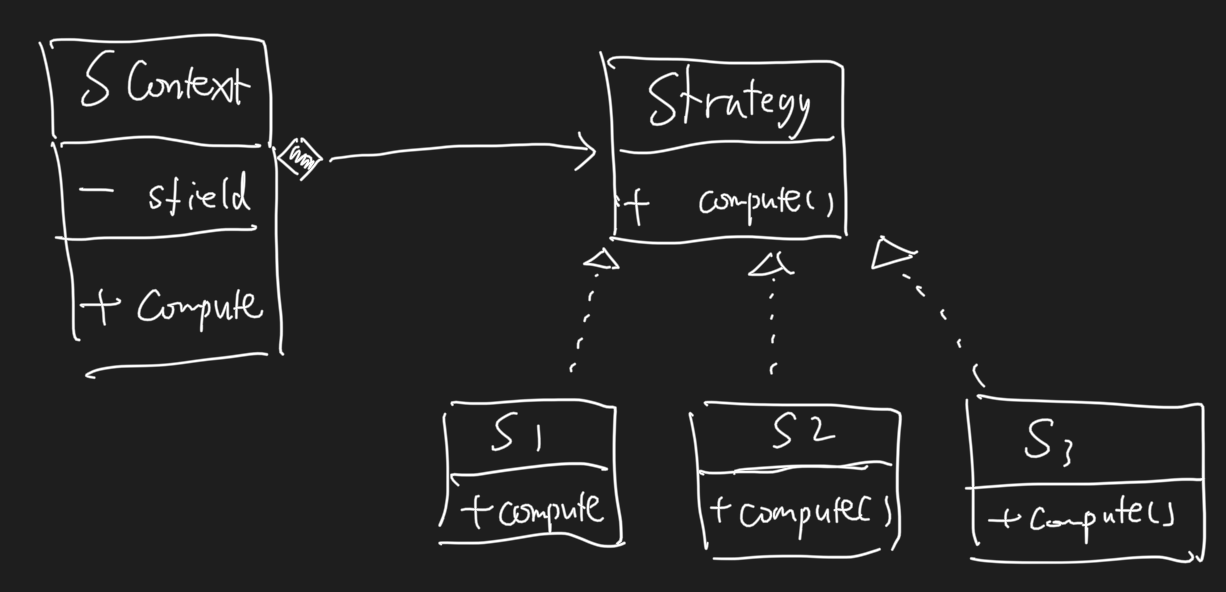 S Context
- sfield
+ Compute
Strategy
+ compute()
S1
+ compute
S2
+ compute()
S3
+ compute()